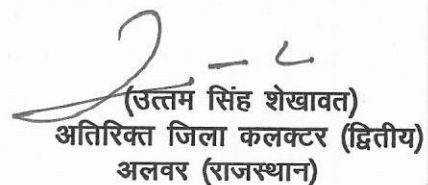 (उत्तम सिंह शेखावत)
अतिरिक्त जिला कलक्टर (द्वितीय)
अलवर (राजस्थान)